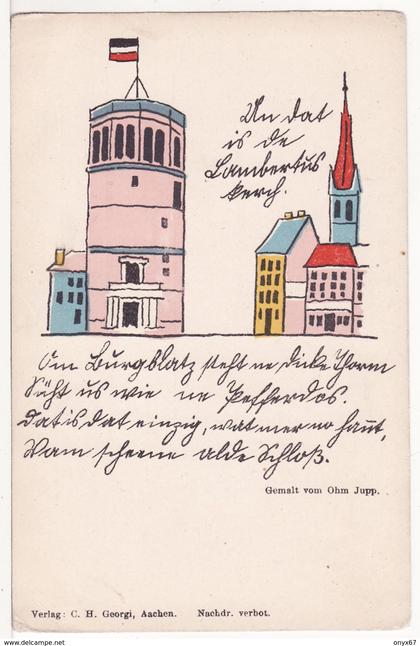 Un dat
is de
Lambertus
kerch.
Om Burgblatz steht ne, dicke Thorm
Süht us wie ne Pefferdos.
Dat is dat einzig, wat mer no hant,
Vam scheene alde Schloß.
Gemalt vom Ohm Jupp.
Verlag: C. H. Georgi, Aachen. Nachdr. verbot.
www.delcampe.net
onyx67